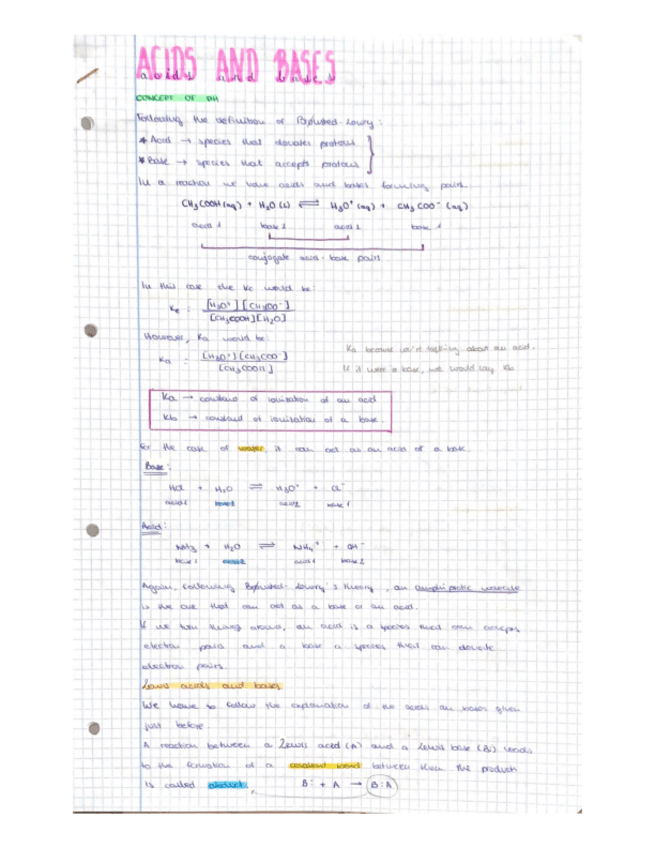 ACIDS AND BASES
acids and bases
CONCEPT OF PH
Following the definition of Brønsted-Lowry:
* Acid → species that donates protons
* Base → species that accepts protons
In a reaction we have acids and bases forming pairs.
CH₃COOH (aq) + H₂O (l) ⇌ H₃O⁺ (aq) + CH₃COO⁻ (aq)
acid 1 base 2 acid 2 base 1
conjugate acid-base pairs
In this case the Kc would be:
Kc : [H₃O⁺][CH₃COO⁻]
[CH₃COOH][H₂O]
However, Ka would be:
Ka because we're talking about an acid.
Ka : [H₃O⁺][CH₃COO⁻]
[CH₃COOH]
If it were a base, we would say Kb
Ka → constant of ionization of an acid
Kb → constant of ionization of a base.
For the case of water, it can act as an acid or a base.
Base:
HCl + H₂O ⇌ H₃O⁺ + Cl⁻
acid 1 base 2 acid 2 base 1
Acid:
NH₃ + H₂O ⇌ NH₄⁺ + OH⁻
base 1 acid 2 acid 1 base 2
Again, following Brønsted-Lowry's theory, an amphiprotic molecule
is the one that can act as a base or an acid.
If we turn things around, an acid is a species that can accept
electron pairs and a base a species that can donate
electron pairs.
Lewis acids and bases
We have to follow the explanation of the acids an bases given
just before.
A reaction between a Lewis acid (A) and a Lewis base (B:) leads
to the formation of a covalent bond between them the product
is called adduct. B: + A → B:A